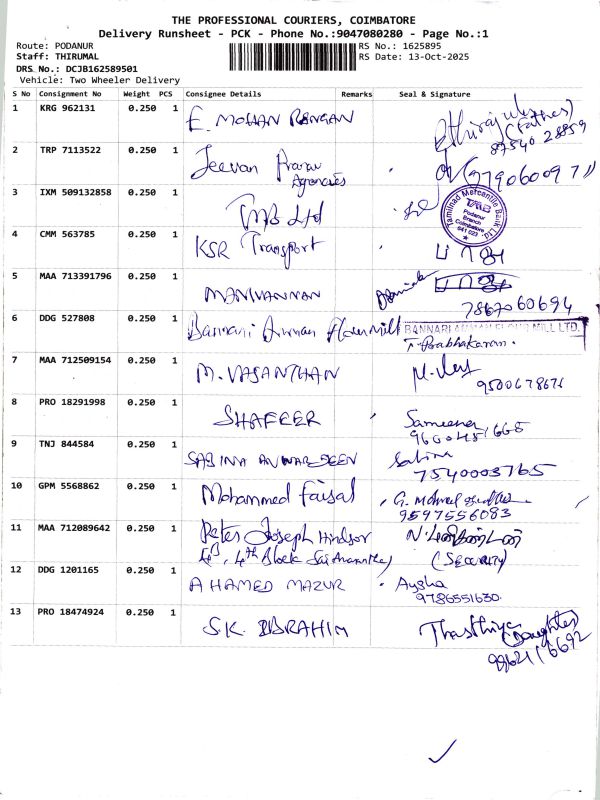 THE PROFESSIONAL COURIERS, COIMBATORE
Delivery Runsheet - PCK - Phone No.:9047080280 - Page No.:1
Route: PODANUR
RS No.: 1625895
Staff: THIRUMAL
RS Date: 13-Oct-2025
DRS No.: DCJB162589501
Vehicle: Two Wheeler Delivery
S No Consignment No Weight PCS Consignee Details Remarks Seal & Signature
1 KRG 962131 0.250 1 E. MOHAN RENGAN
(Father)
87540 28859
2 TRP 7113522 0.250 1 Jeevan
Agencies
9790600971
3 IXM 509132858 0.250 1 TMB Ltd
Tamilnad Mercantile Bank Ltd.
TMB
Podanur
Branch
Coimbatore
641 023
4 CMM 563785 0.250 1 KSR Transport
5 MAA 713391796 0.250 1 MANIVANNAN
7867060694
6 DDG 527808 0.250 1 Bannari Amman Flour mill
BANNARI AMMAN FLOUR MILL LTD.
T. Prabhakaran.
7 MAA 712509154 0.250 1 M. VASANTHAN
9500678671
8 PRO 18291998 0.250 1 SHAFEER Sameena
9 TNJ 844584 0.250 1 SABINA ANWARDEEN Sabina
7540003765
10 GPM 5568862 0.250 1 Mohammed Faisal
9597556083
11 MAA 712089642 0.250 1 Peter Joseph Hindsor
4th Block
(Security)
12 DDG 1201165 0.250 1 AHAMED MAZUR Aysha
9786551630
13 PRO 18474924 0.250 1 S.K. IBRAHIM
(Daughter)
9962116692